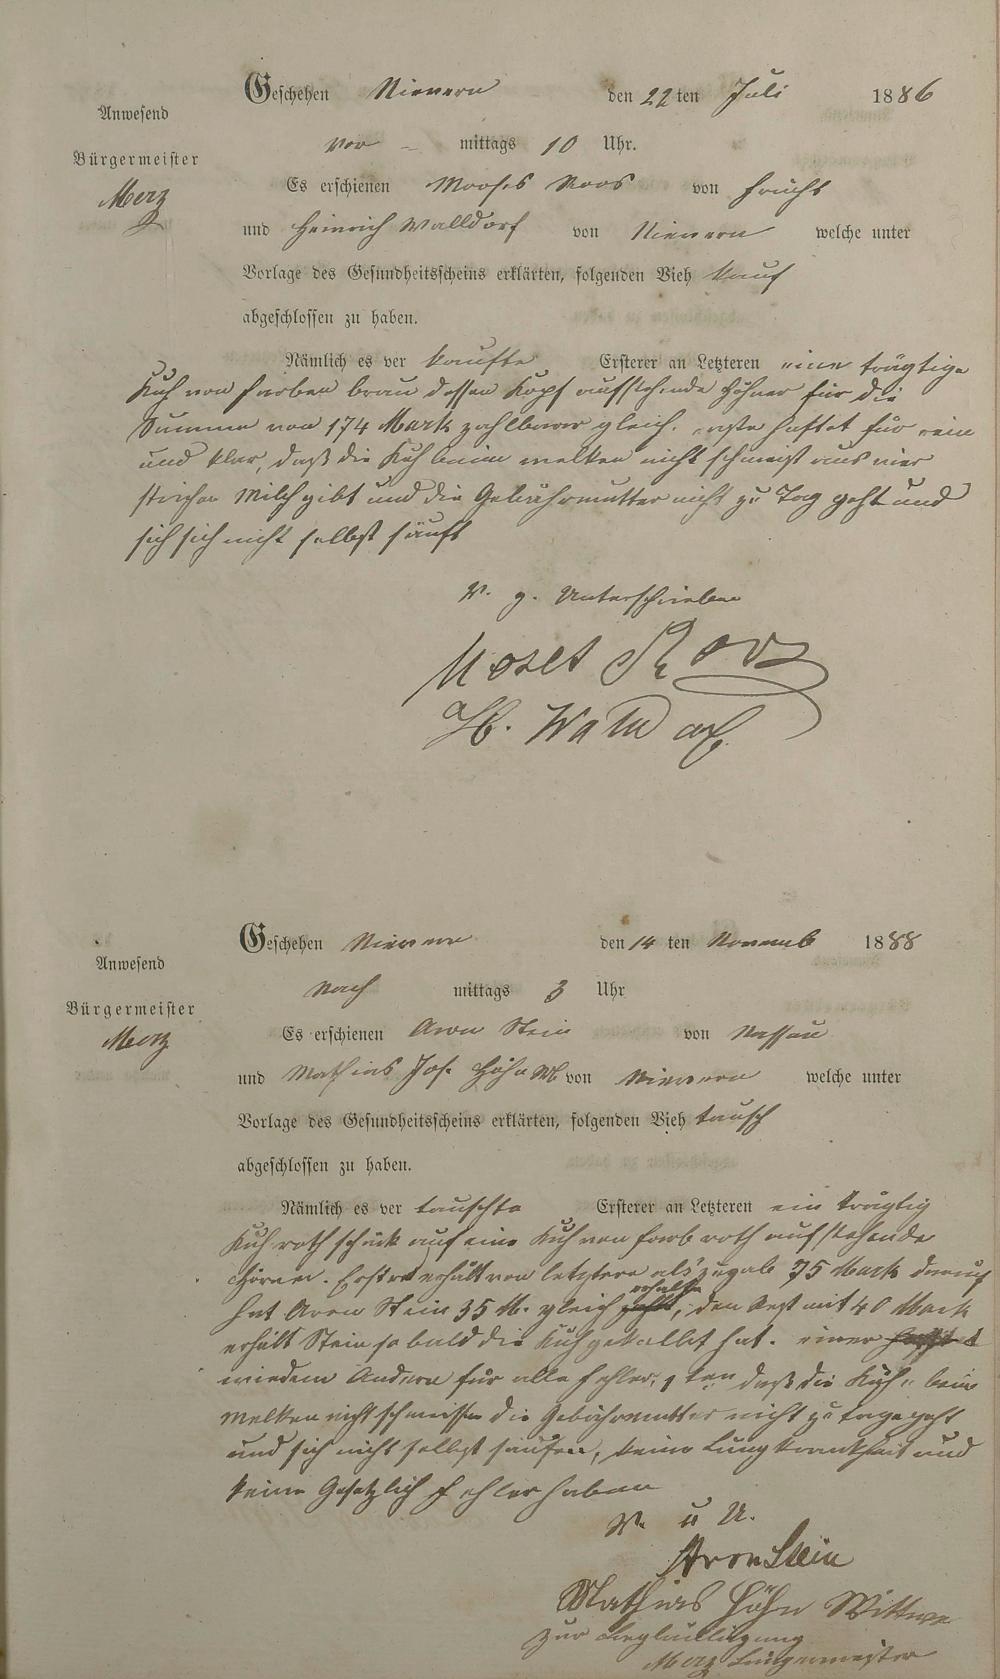 Geschehen Nievern den 22ten Juli 1886
Anwesend
vor - mittags 10 Uhr.
Bürgermeister
Merz
Es erschienen Mooses Roos von Frücht
und Heinrich Walldorf von Nievern welche unter
Vorlage des Gesundheitsscheins erklärten, folgenden Vieh kauf
abgeschlossen zu haben.
Nämlich es ver kaufte Ersterer an Letzteren eine trägtige
Kuh von farben braun dessen Kopf aufstehende Höhner für die
Summe von 174 Mark zahlbar gleich. erste haftet für rein
und klar, daß die Kuh beim melken nicht schmeist aus vier
strichen Milch gibt und die Gebährmutter nicht zu Tag geht und
sich sich nicht selbst säuft
V. g. Unterschrieben
Moses Roos
H. Walldorf
Geschehen Nievern den 14 ten Novemb 1888
Anwesend
Nach mittags 3 Uhr
Bürgermeister
Merz
Es erschienen Aron Stein von Nassau
und Mathias Jos. Höhn W von Nievern welche unter
Vorlage des Gesundheitsscheins erklärten, folgenden Vieh tausch
abgeschlossen zu haben.
Nämlich es ver tauschte Ersterer an Letzteren ein trägtig
Kuh roth scheck auf eine Kuh von farb roth aufstehende
Hörner. Erstre erhält von letztere als zugab 75 Mark darauf
hat Aron Stein 35 M. gleich erhalten, den Rest mit 40 Mark
erhält Stein so bald die Kuh gekalbt hat. einer haftet
wiedem Andern für alle fehler, 1 ten daß die Kühe beim
Melken nicht schmeissen die Gebährmutter nicht zu tage geht
und sich nicht selbst saufen, keine Lungkrankheit und
keine Gesetzlich fehler haben
V. u U.
Aron Stein
Mathias Höhn Wittwe
zur Beglaubigung
Merz Bürgermeister